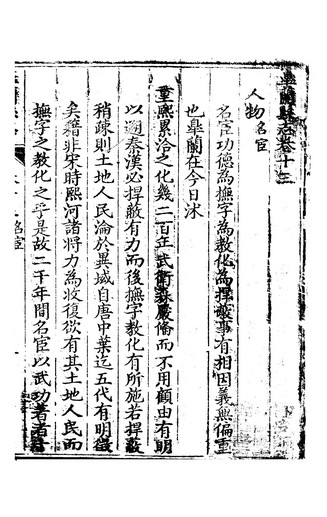 皐蘭縣志卷十三
人物名臣
名臣功德為撫字為教化為捍蔽事有相因義無偏重
也皐蘭在今日沐
重熙累洽之化幾二百年武衛森嚴備而不用顧由有明
以遡秦漢必捍蔽有力而後撫字教化有所施若捍蔽
稍疎則土地人民淪於異域自唐中葉迄五代有明徵
矣藉非宋時熙河諸將力為收復欲有其土地人民而
撫字之教化之乎是故二千年間名臣以武功著者
名臣